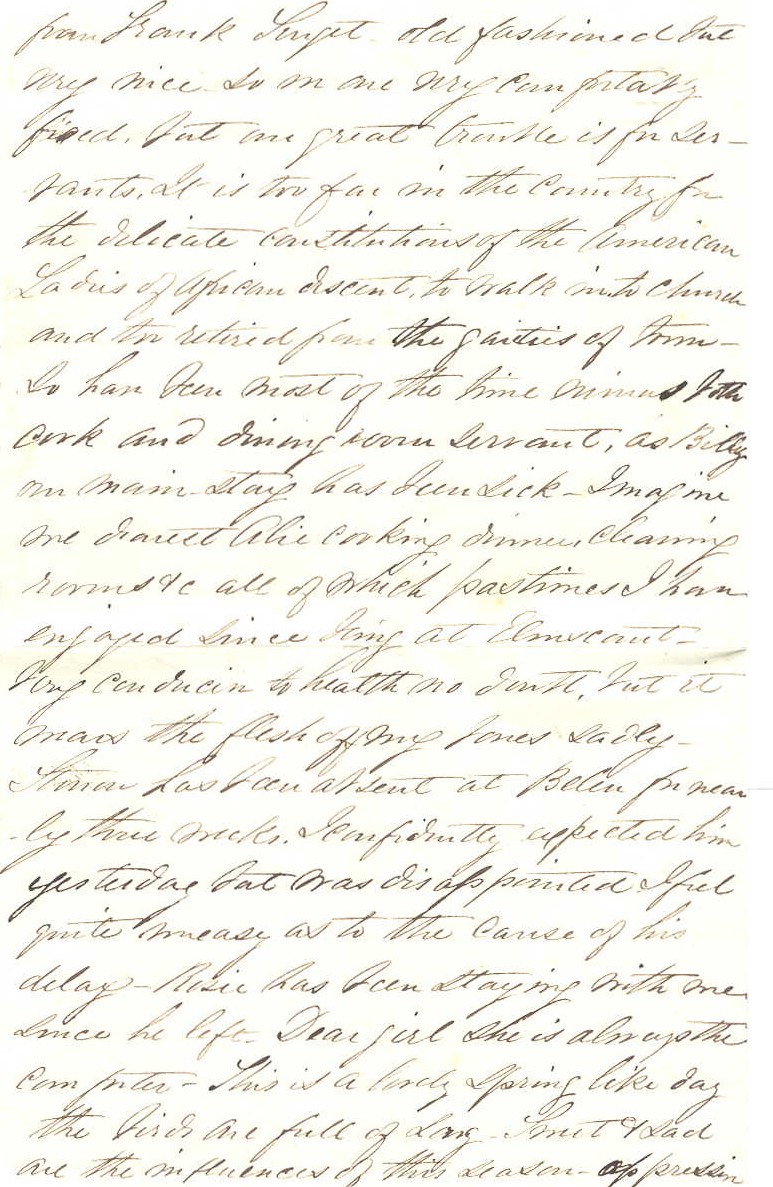 from Frank Surget - old fashioned but
very nice - So we are very comfortably
fixed, but our great trouble is for ser-
vants. It is too far in the country for
the delicate constitutions of the American
Ladies of African descent, to walk in to church
and too retired from the gaieties of town -
So have been most of the time minus both
cook and dining room servant, as Billy
our main-stay has been sick - Imagine
me dearest Alie cooking dinner, cleaning
rooms &c all of which pastimes I have
engaged since being at Elmscourt -
Very conducive to health no doubt, but it
mars the flesh off my bones sadly -
has been absent at Belen for near
ly three weeks. I confidently expected him
yesterday but was disappointed I feel
quite uneasy as to the cause of his
delay - Rosie has been staying with me
since he left - Dear girl she is always the
comforter - This is a lovely Spring like day
the birds are full of song - Sweet & sad
are the influences of this season - oppressive